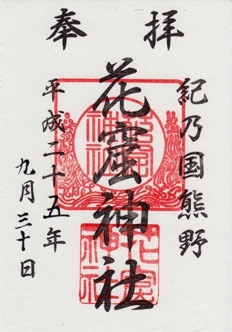 奉拝
紀乃国熊野
花窟神社
平成二十五年
九月三十日